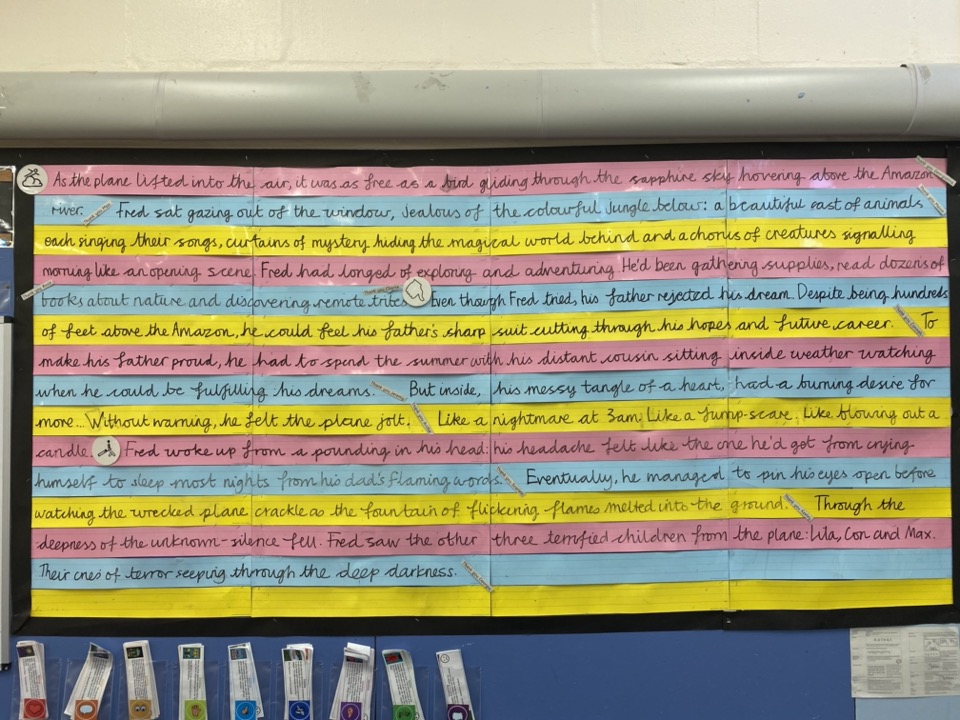 As the plane lifted into the air, it was as free as a bird gliding through the sapphire sky hovering above the Amazon
river. Fred sat gazing out of the window, jealous of the colourful jungle below: a beautiful cast of animals
each singing their songs, curtains of mystery hiding the magical world behind and a chorus of creatures signalling
morning like an opening scene. Fred had longed of exploring and adventuring. He'd been gathering supplies, read dozens of
books about nature and discovering remote tribes. Even though Fred tried, his father rejected his dream. Despite being hundreds
of feet above the Amazon, he could feel his father's sharp suit cutting through his hopes and future career. To
make his father proud, he had to spend the summer with his distant cousin sitting inside weather watching
when he could be fulfilling his dreams. But inside, his messy tangle of a heart, had a burning desire for
more... Without warning, he felt the plane jolt. Like a nightmare at 3am. Like a jump-scare. Like blowing out a
candle. Fred woke up from a pounding in his head: his headache felt like the one he'd got from crying
himself to sleep most nights from his dad's flaming words. Eventually, he managed to pin his eyes open before
watching the wrecked plane crackle as the fountain of flickering flames melted into the ground. Through the
deepness of the unknown - silence fell. Fred saw the other three terrified children from the plane: Lila, Con and Max.
Their cries of terror seeping through the deep darkness.